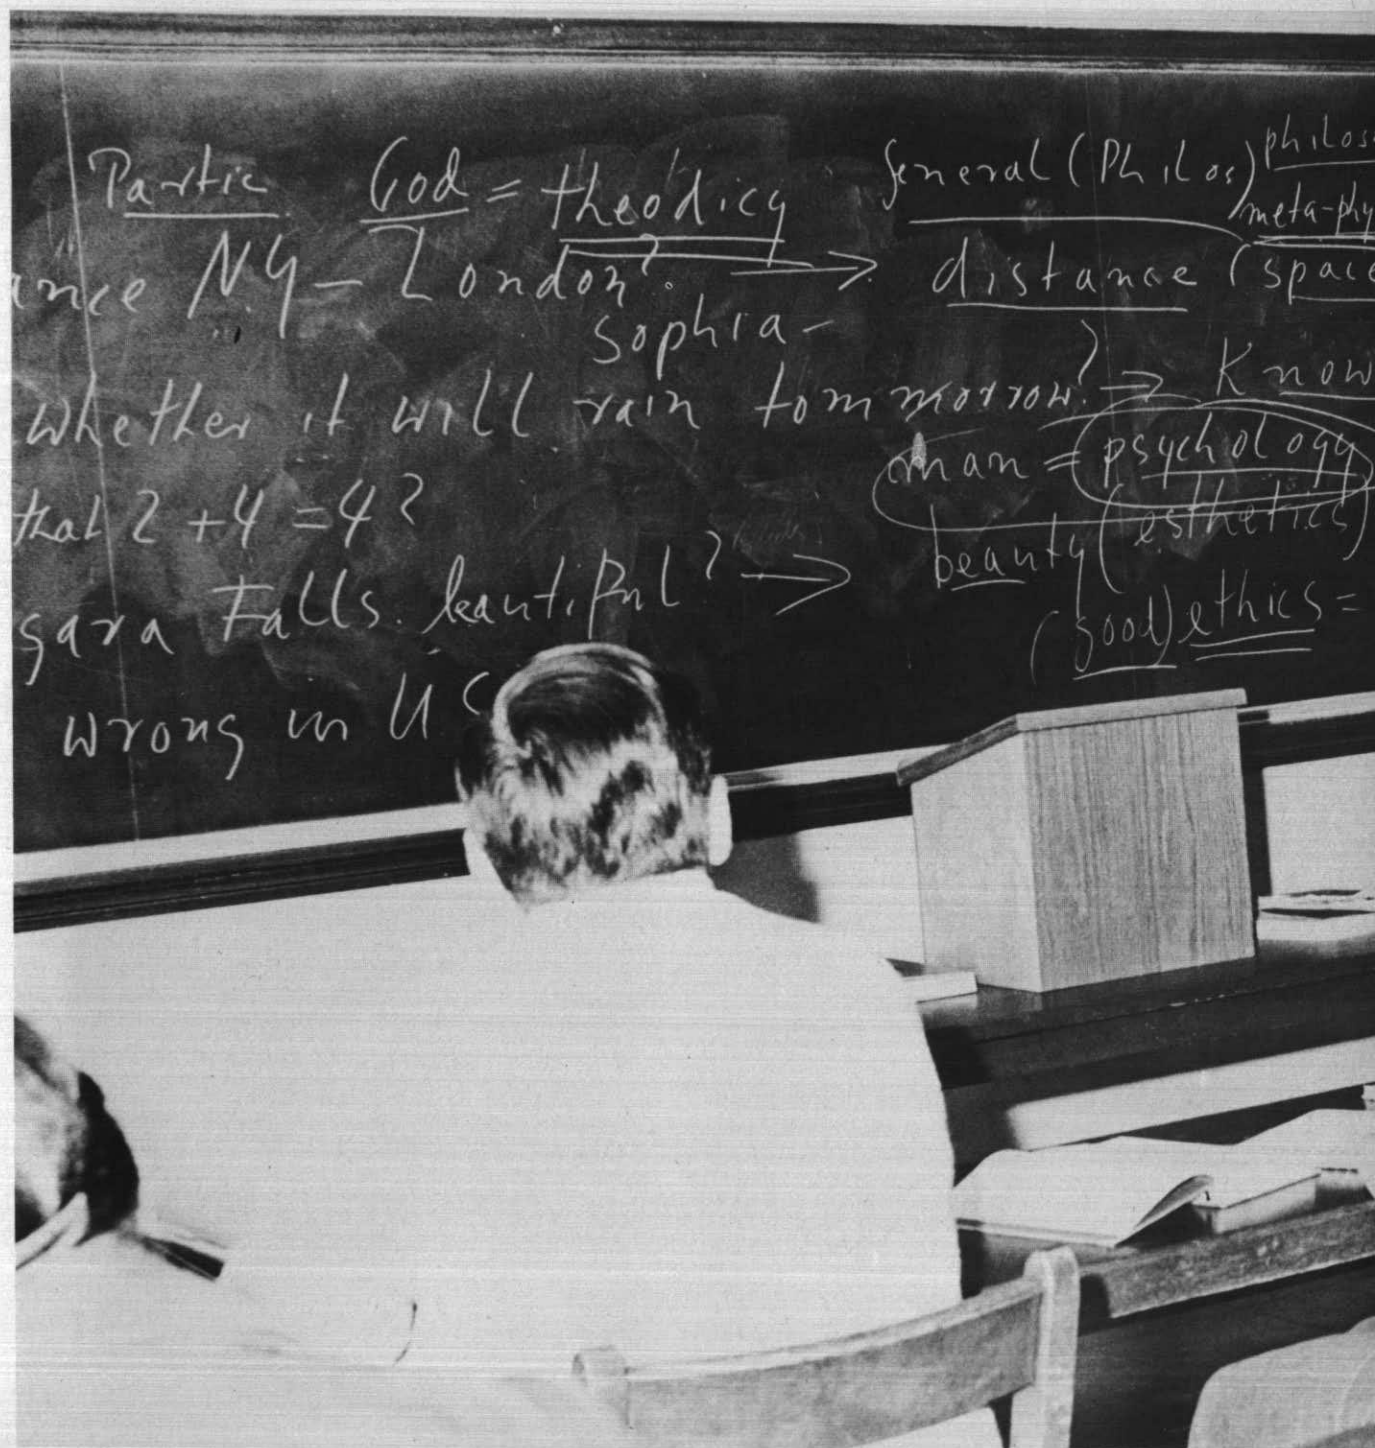 Partic God = theodicy General (Philos) philos
meta-phy
ance NY - London? → distance (space
sophia -
whether it will rain tommorrow? → Know
man = psychology
that 2 + 4 = 4?
gara Falls beautiful? → beauty (esthetics)
(good) ethics =
wrong in US